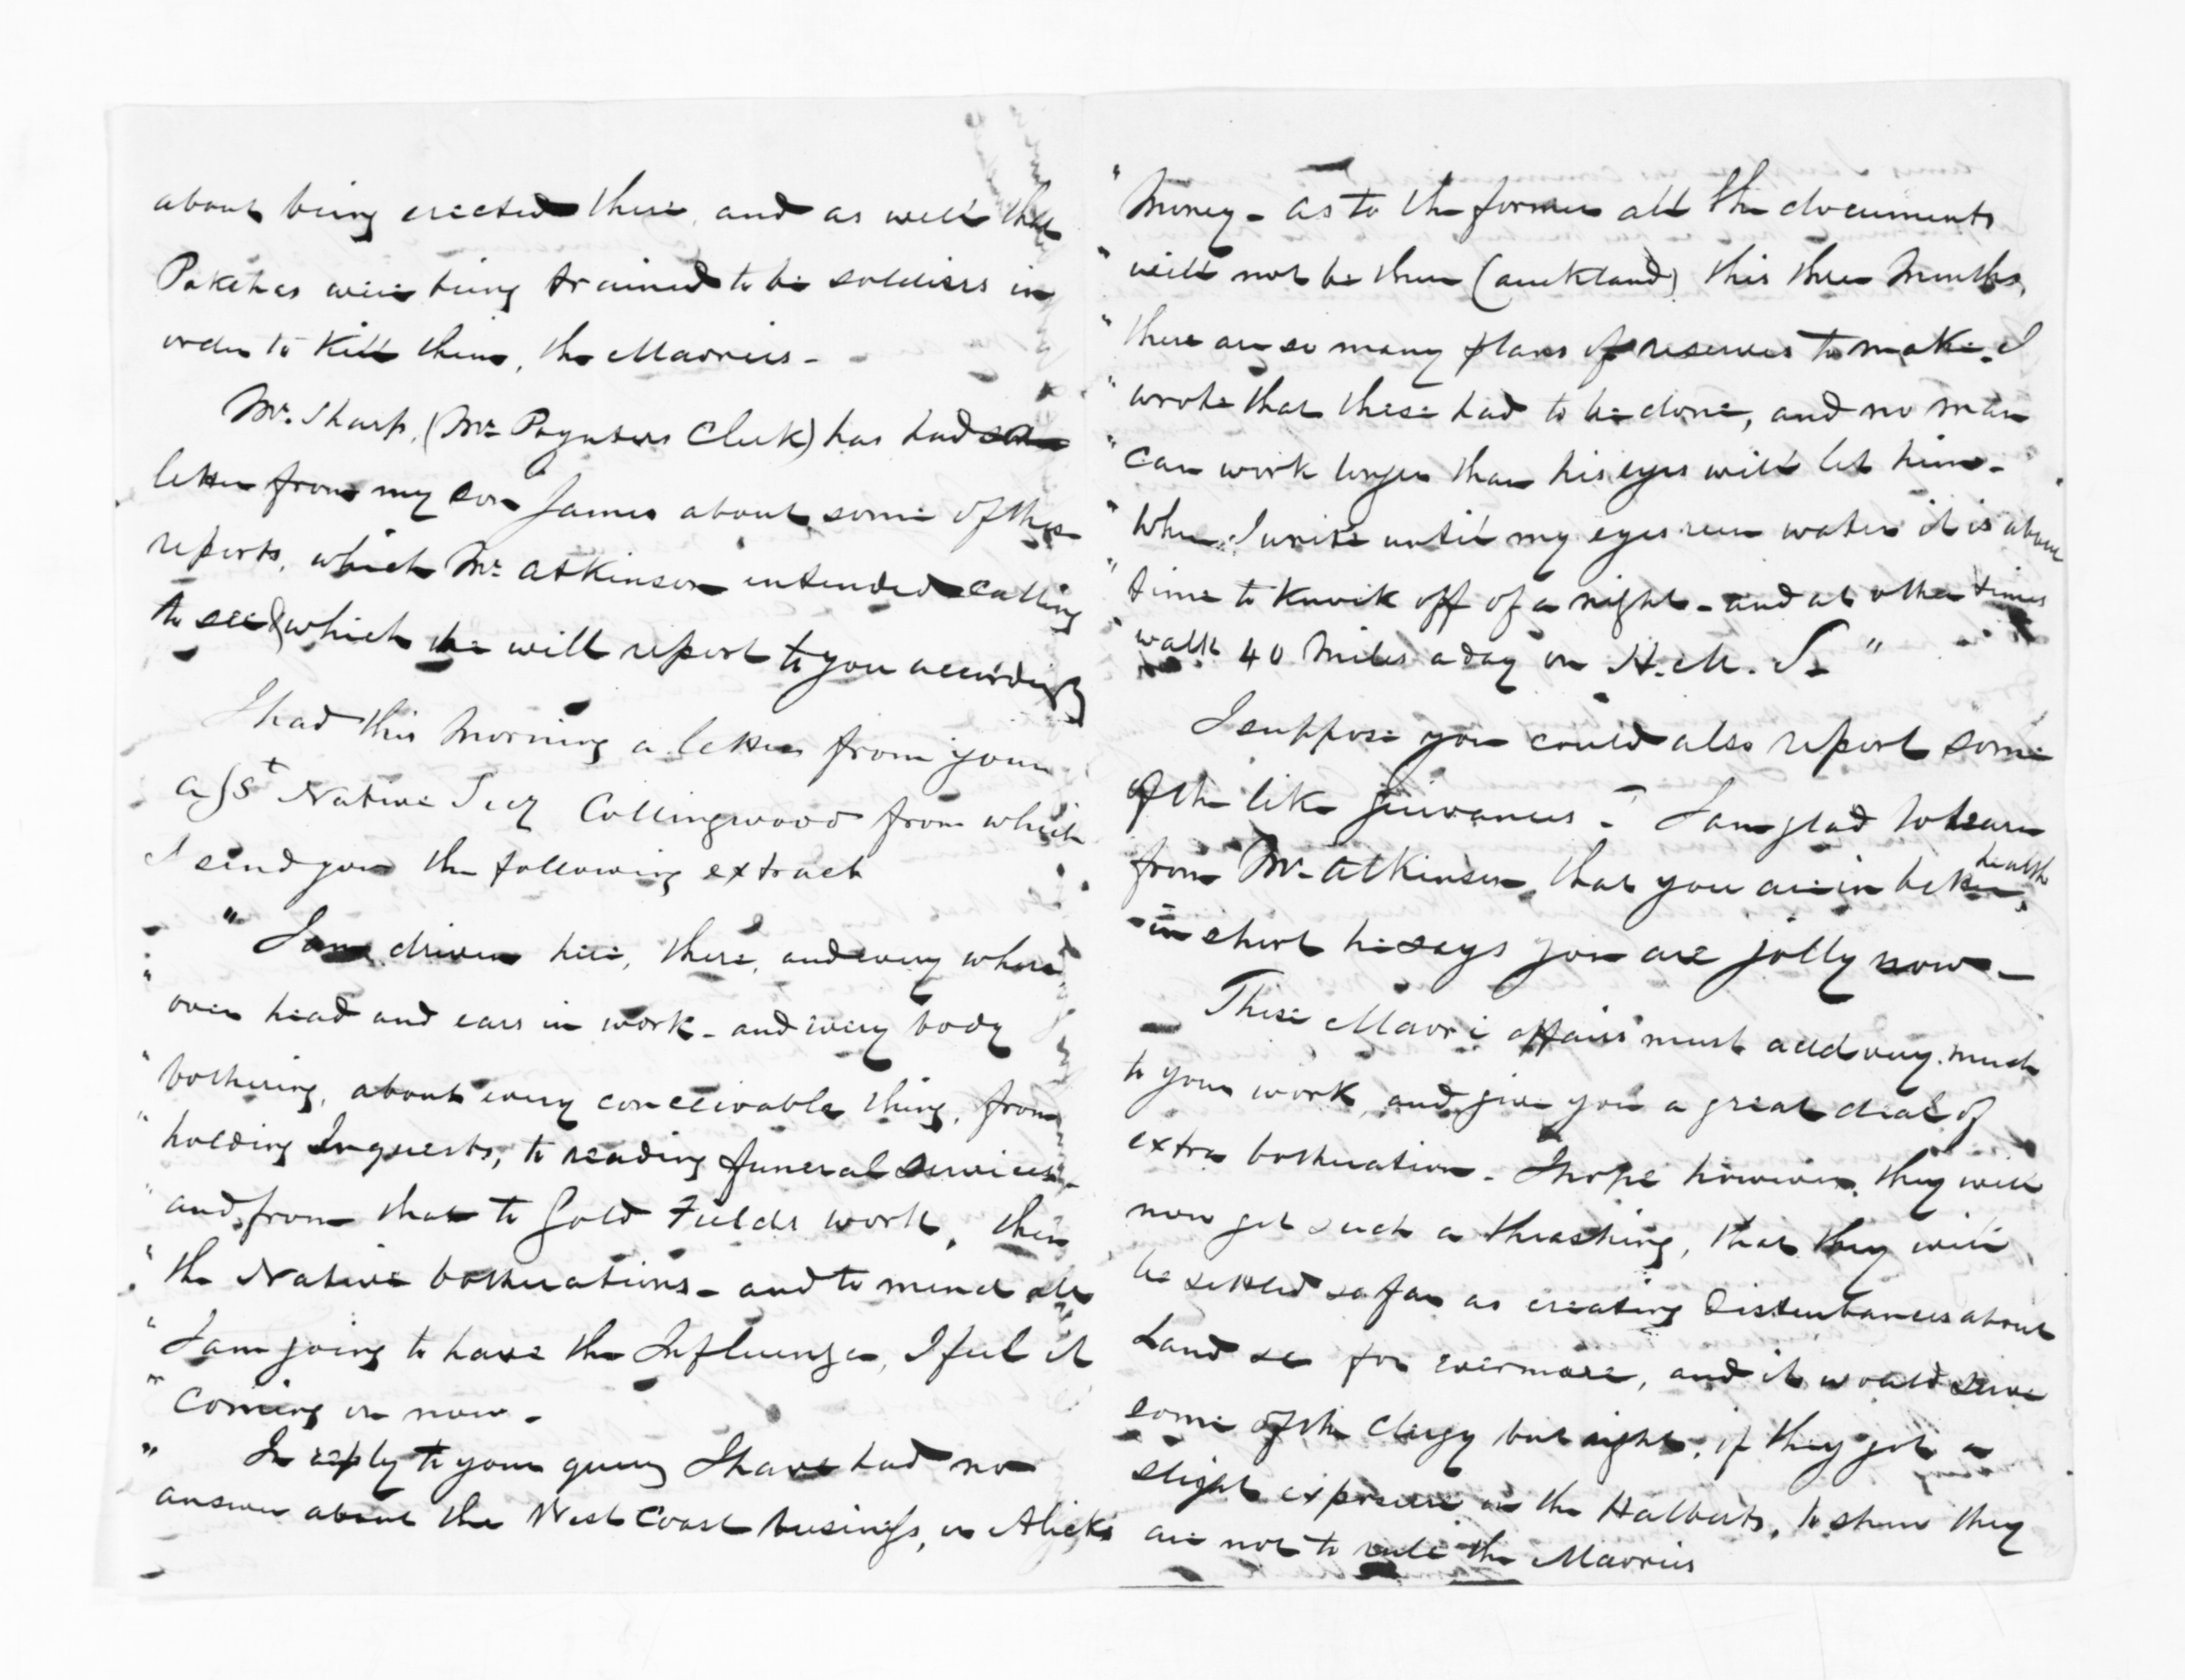 about being erected there, and as well that
Pakehas were being trained to be soldiers in
order to kill them, the Maories -
Mr. Sharp, (Mr. Poynters Clerk) has had a
letter from my son James about some of these
reports, which Mr. Atkinson intended calling
to see & which he will report to you accordingly
I had this Morning a letter from your
Asst Native Secy Collingwood from which
I send you the following extract
" I am driven here, there, and every where
" over head and ears in work - and every body
" bothering, about every conceivable thing, from
" holding Inquests, to reading funeral services -
" and from that to Gold Fields work, then
" the Native botherations - and to mend all
" I am going to have the Influenza, I feel it
" Coming on now -
" In reply to your query I have had no
answer about the West Coast business, or Alick's
" Money - as to the former all the documents
" will not be there (Auckland) this three Months,
" there are so many plans of reserves to make. I
" wrote that these had to be done, and no man
" can work longer than his eyes will let him -
" When I write until my eyes run water it is about
" time to knock off of a night - and at other times
" walk 40 Miles a day on H. M. S - "
I suppose you could also report some
of the like grievances - I am glad to learn
from Mr. Atkinson, that you are in better health,
- in short he says you are jolly now -
These Maori affairs must add very much
to your work, and give you a great deal of
extra botheration - I hope however they will
now get such a thrashing, that they will
be settled so far as creating Disturbances about
Land &c for evermore, and it would serve
some of the clergy but right, if they got a
slight exposure on the Halberts, to shew they
are not to rule the Maories